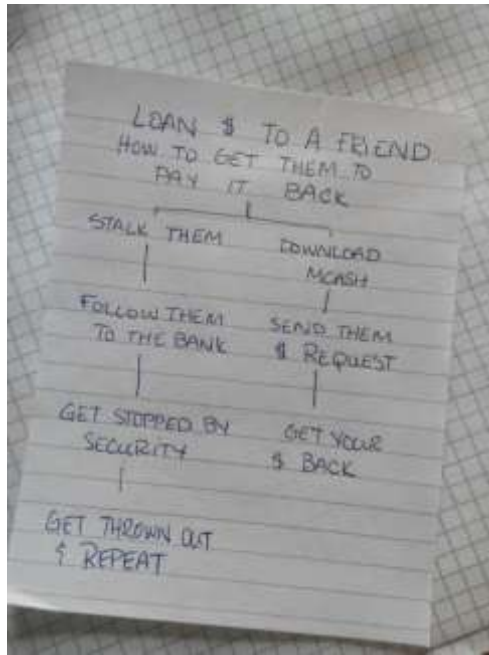 LOAN $ TO A FRIEND
HOW TO GET THEM TO
PAY IT BACK
STALK THEM
FOLLOW THEM
TO THE BANK
GET STOPPED BY
SECURITY
GET THROWN OUT
& REPEAT
DOWNLOAD
MCASH
SEND THEM
$ REQUEST
GET YOUR
$ BACK